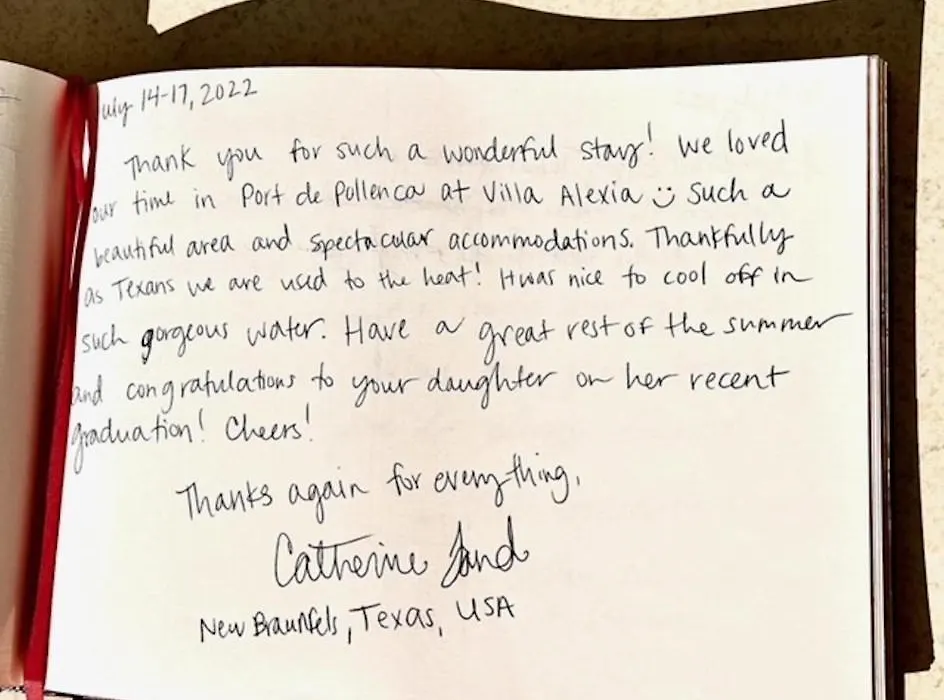 July 14-17, 2022
Thank you for such a wonderful stay! We loved
our time in Port de Pollenca at Villa Alexia :) Such a
beautiful area and spectacular accommodations. Thankfully
as Texans we are used to the heat! It was nice to cool off in
such gorgeous water. Have a great rest of the summer
and congratulations to your daughter on her recent
graduation! Cheers!
Thanks again for everything,
Catherine
New Braunfels, Texas, USA